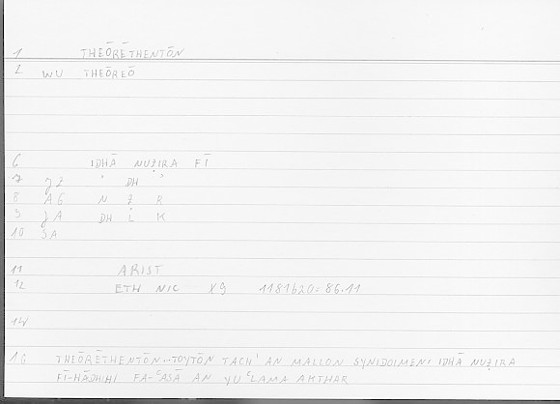 1 THEŌRĒTHENTŌN
2 WU THEŌREŌ
6 IDHĀ NUẒIRA FĪ
7 " DH "
8 AG N Ẓ R
9 ʒA DH L K
10 SA
11 ARIST
12 ETH NIC X9 1181b20=86.11
14
16 THEŌRĒTHENTŌN...TOYTŌN TACH' AN MALLON SYNIDOIMEN: IDHĀ NUẒIRA
FĪ-HĀDHIHI FA-ʿASĀ AN YUʿLAMA AKTHAR